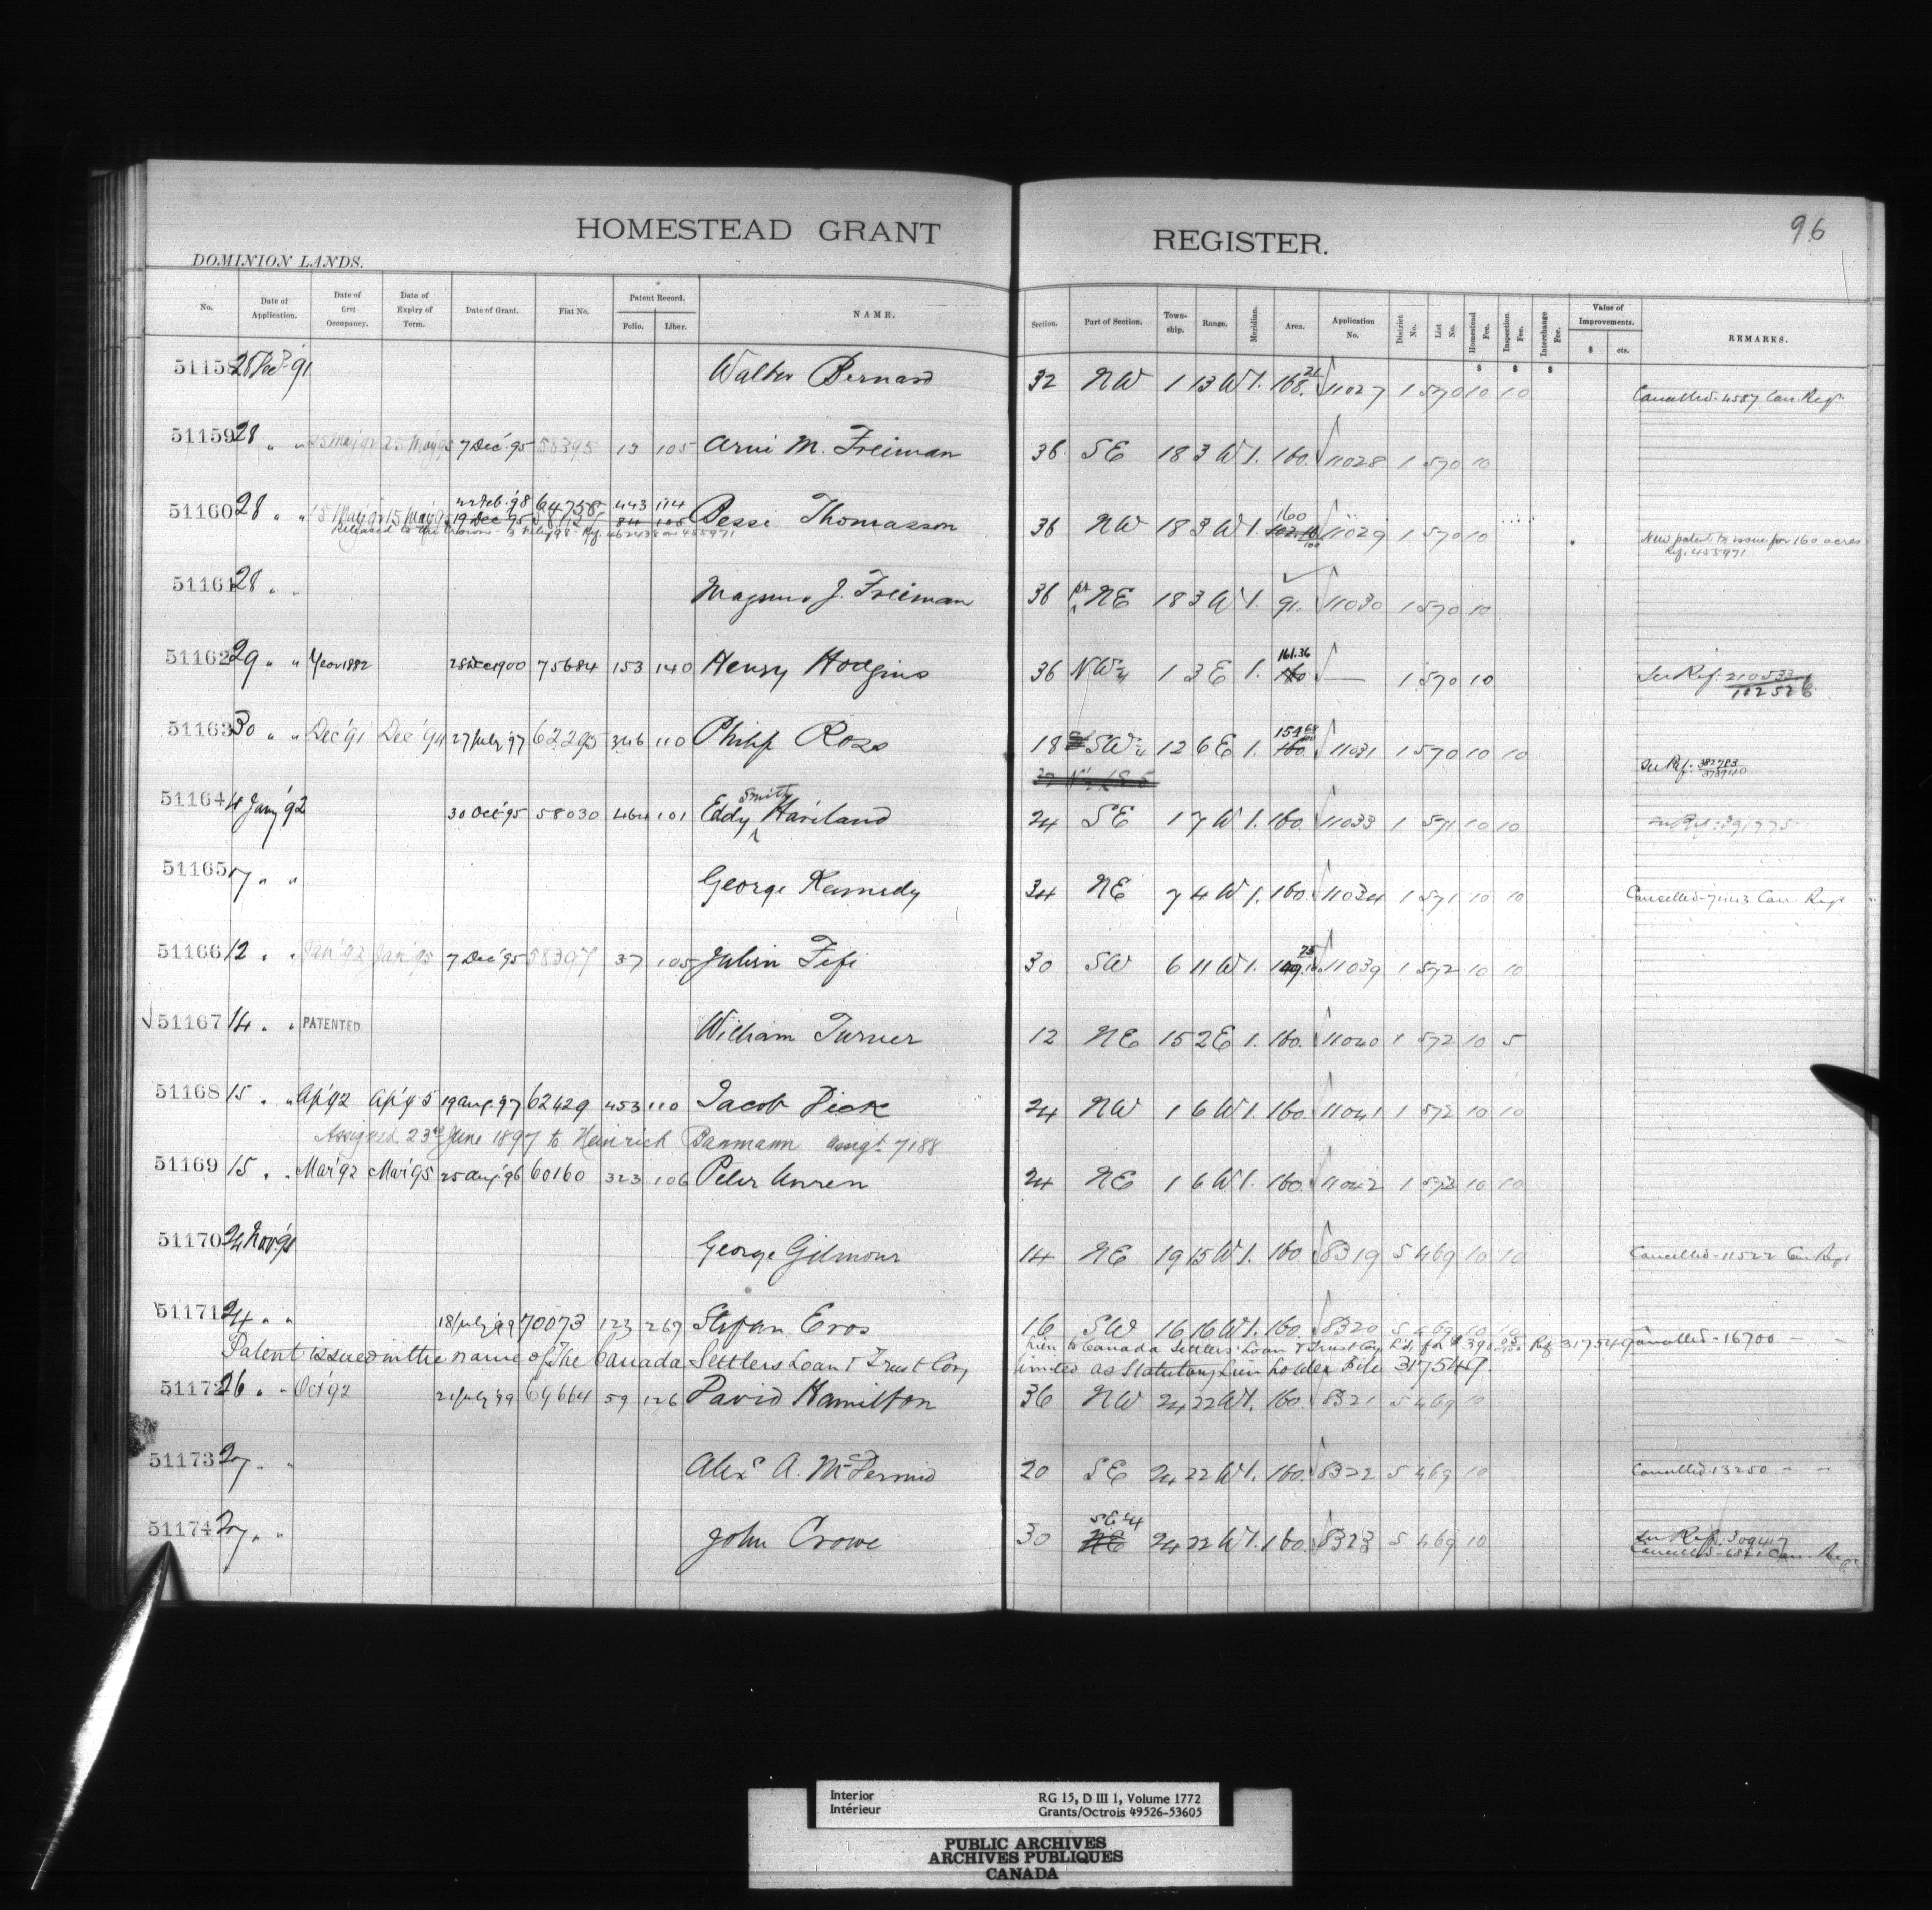 HOMESTEAD GRANT REGISTER.
96
DOMINION LANDS.
No. Date of Application. Date of first Occupancy. Date of Expiry of Term. Date of Grant. Fiat No. Patent Record. Folio. Liber. NAME. Section. Part of Section. Town-ship. Range. Meridian. Area. Application No. District No. List No. Homestead Fee. Inspection Fee. Interchange Fee. Value of Improvements. $ cts. REMARKS.
$ $ $
51158 28 Dec '91 Walter Bernard 32 NW 1 13 W 1. 168. 21 11027 1 570 10 10 Cancelled. 4587 Can. Regr.
51159 28 " " 25 May '92 25 May '95 7 Dec '95 58395 13 105 Arni M. Freiman 36 SE 18 3 W 1. 160. 11028 1 570 10
22 Feb. '98 64758 443 114 160
51160 28 " " 15 May '92 15 May '95 19 Dec '95 84 105 Pessi Thomasson 36 NW 18 3 W 1. 11029 1 570 10 New patent to issue for 160 acres
Released to the Crown Ref. 462438 on 455971 Ref. 455971
51161 28 " " Magnus J. Freeman 36 pt NE 18 3 W 1. 91. 11030 1 570 10
51162 29 " " Year 1882 28 Dec 1900 75684 153 140 Henry Hodgins 36 NW¼ 1 3 E 1. 161.36 160 — 1 570 10 See Ref: 210533 102526
51163 30 " " Dec '91 Dec '94 27 July '97 62295 346 110 Philip Ross 18 SW¼ 12 6 E 1. 154 68/100 160. 11031 1 570 10 10 See Ref: 382783
51164 4 Jany '92 30 Oct '95 58030 464 101 Eddy Smith Haviland 24 SE 1 7 W 1. 160. 11033 1 571 10 10 See Ref: 391775
51165 7 " " George Kennedy 34 NE 7 4 W 1. 160. 11034 1 571 10 10 Cancelled- Can. Regr
51166 12 " " Jan '92 Jan '95 7 Dec '95 58397 37 105 Julien Fifi 30 SW 6 11 W 1. 11039 1 572 10 10
51167 14 " " PATENTED William Turner 12 NE 15 2 E 1. 160. 11040 1 572 10 5
51168 15 " " Ap '92 Ap '95 19 Aug. 97 62429 453 110 Jacob Dick 24 NW 1 6 W 1. 160. 11041 1 572 10 10
Assigned 23rd June 1897 to Heinrich Banmann Assgt 7188
51169 15 " " Mar '92 Mar '95 25 Aug. '96 60160 323 106 Peter Unren 24 NE 1 6 W 1. 160. 11042 1 572 10 10
51170 24 Nov. '91 George Gilmour 14 NE 19 15 W 1. 160 8319 5 469 10 10 Cancelled-11522 Can. Regr
51171 24 " " 18 July '99 70073 123 267 Stefan Eros 16 SW 16 16 W 1. 160. 8320 5 469 10 10 Cancelled-16700 — —
Lien to Canada Settlers' Loan & Trust Coy Ltd, for $390. Ref 317549
Patent issued in the name of The Canada Settlers Loan & Trust Coy, limited as Statutory Lien holder File 317549.
51172 26 " " Oct '92 21 July '99 69664 59 126 David Hamilton 36 NW 24 22 W 1. 160. 8321 5 469 10
51173 27 " " Alexr A. McDermid 20 SE 24 22 W 1. 160. 8322 5 469 10 Cancelled 13250 — —
51174 27 " " John Crowe 30 SE¼ NE 24 22 W 1. 160. 8323 5 469 10 See Ref. 309417
Cancelled- Can. Regr
Interior RG 15, D III 1, Volume 1772
Intérieur Grants/Octrois 49526-53605
PUBLIC ARCHIVES
ARCHIVES PUBLIQUES
CANADA